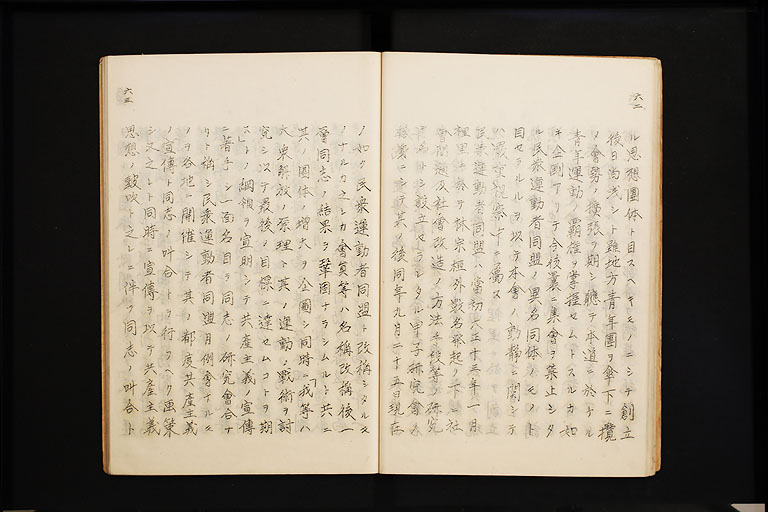 六二
ル思想團体ト目スヘキモノニシテ創立
後日尚浅シト雖地方青年團ヲ傘下ニ攬
メ會勢ノ擴張ヲ期シ聽テ本道ニ於ケル
青年運動ノ覇権ヲ掌握セムトスルカ如
キ企劃アリテ今後裏ニ集會ヲ禁止シタ
ル民衆運動者同盟ノ異名同体ノモノト
目セラルルヲ以テ本會ノ動静ニ関シテ
ハ最モ視察中ニ属ス
民衆運動者同盟ハ當初大正十三年一月
裡里ニ於テ林宗桓外数名発起ノ下ニ社
會問題及社會改造ノ方法手段等ヲ研究
目的トシ設立セラレタル甲子研究會
ニシテ其ノ後同年九月二十五日現在
六三
ノ如ク民衆運動者同盟ト改稱シタルモ
ノナルカ之レカ會員等ハ名稱改稱後一
層同志ノ結果ヲ鞏固ナラシムルト共ニ
其ノ團体ノ増大ヲ企圖シ同時ニ「我等ハ
大衆解放ノ原理ト其ノ運動ノ戰術ヲ討
究シ以テ最後ノ目標ニ達セムコトヲ期
ス」トノ綱領ヲ宣明シテ共産主義ノ宣傳
ニ着手シ一面名目ヲ同志ノ研究會合テ
リト稱シ民衆運動者同盟月例會ナルモ
ノヲ各地ニ開催シテ其ノ都度共産主義
ノ宣傳ト同志ノ叫合トヲ行フヘク画策
シ又之レト同時ニ宣傳ヲ以テ共産主義
思想ノ鼓吹ト之レニ伴フ同志ノ叫合ト